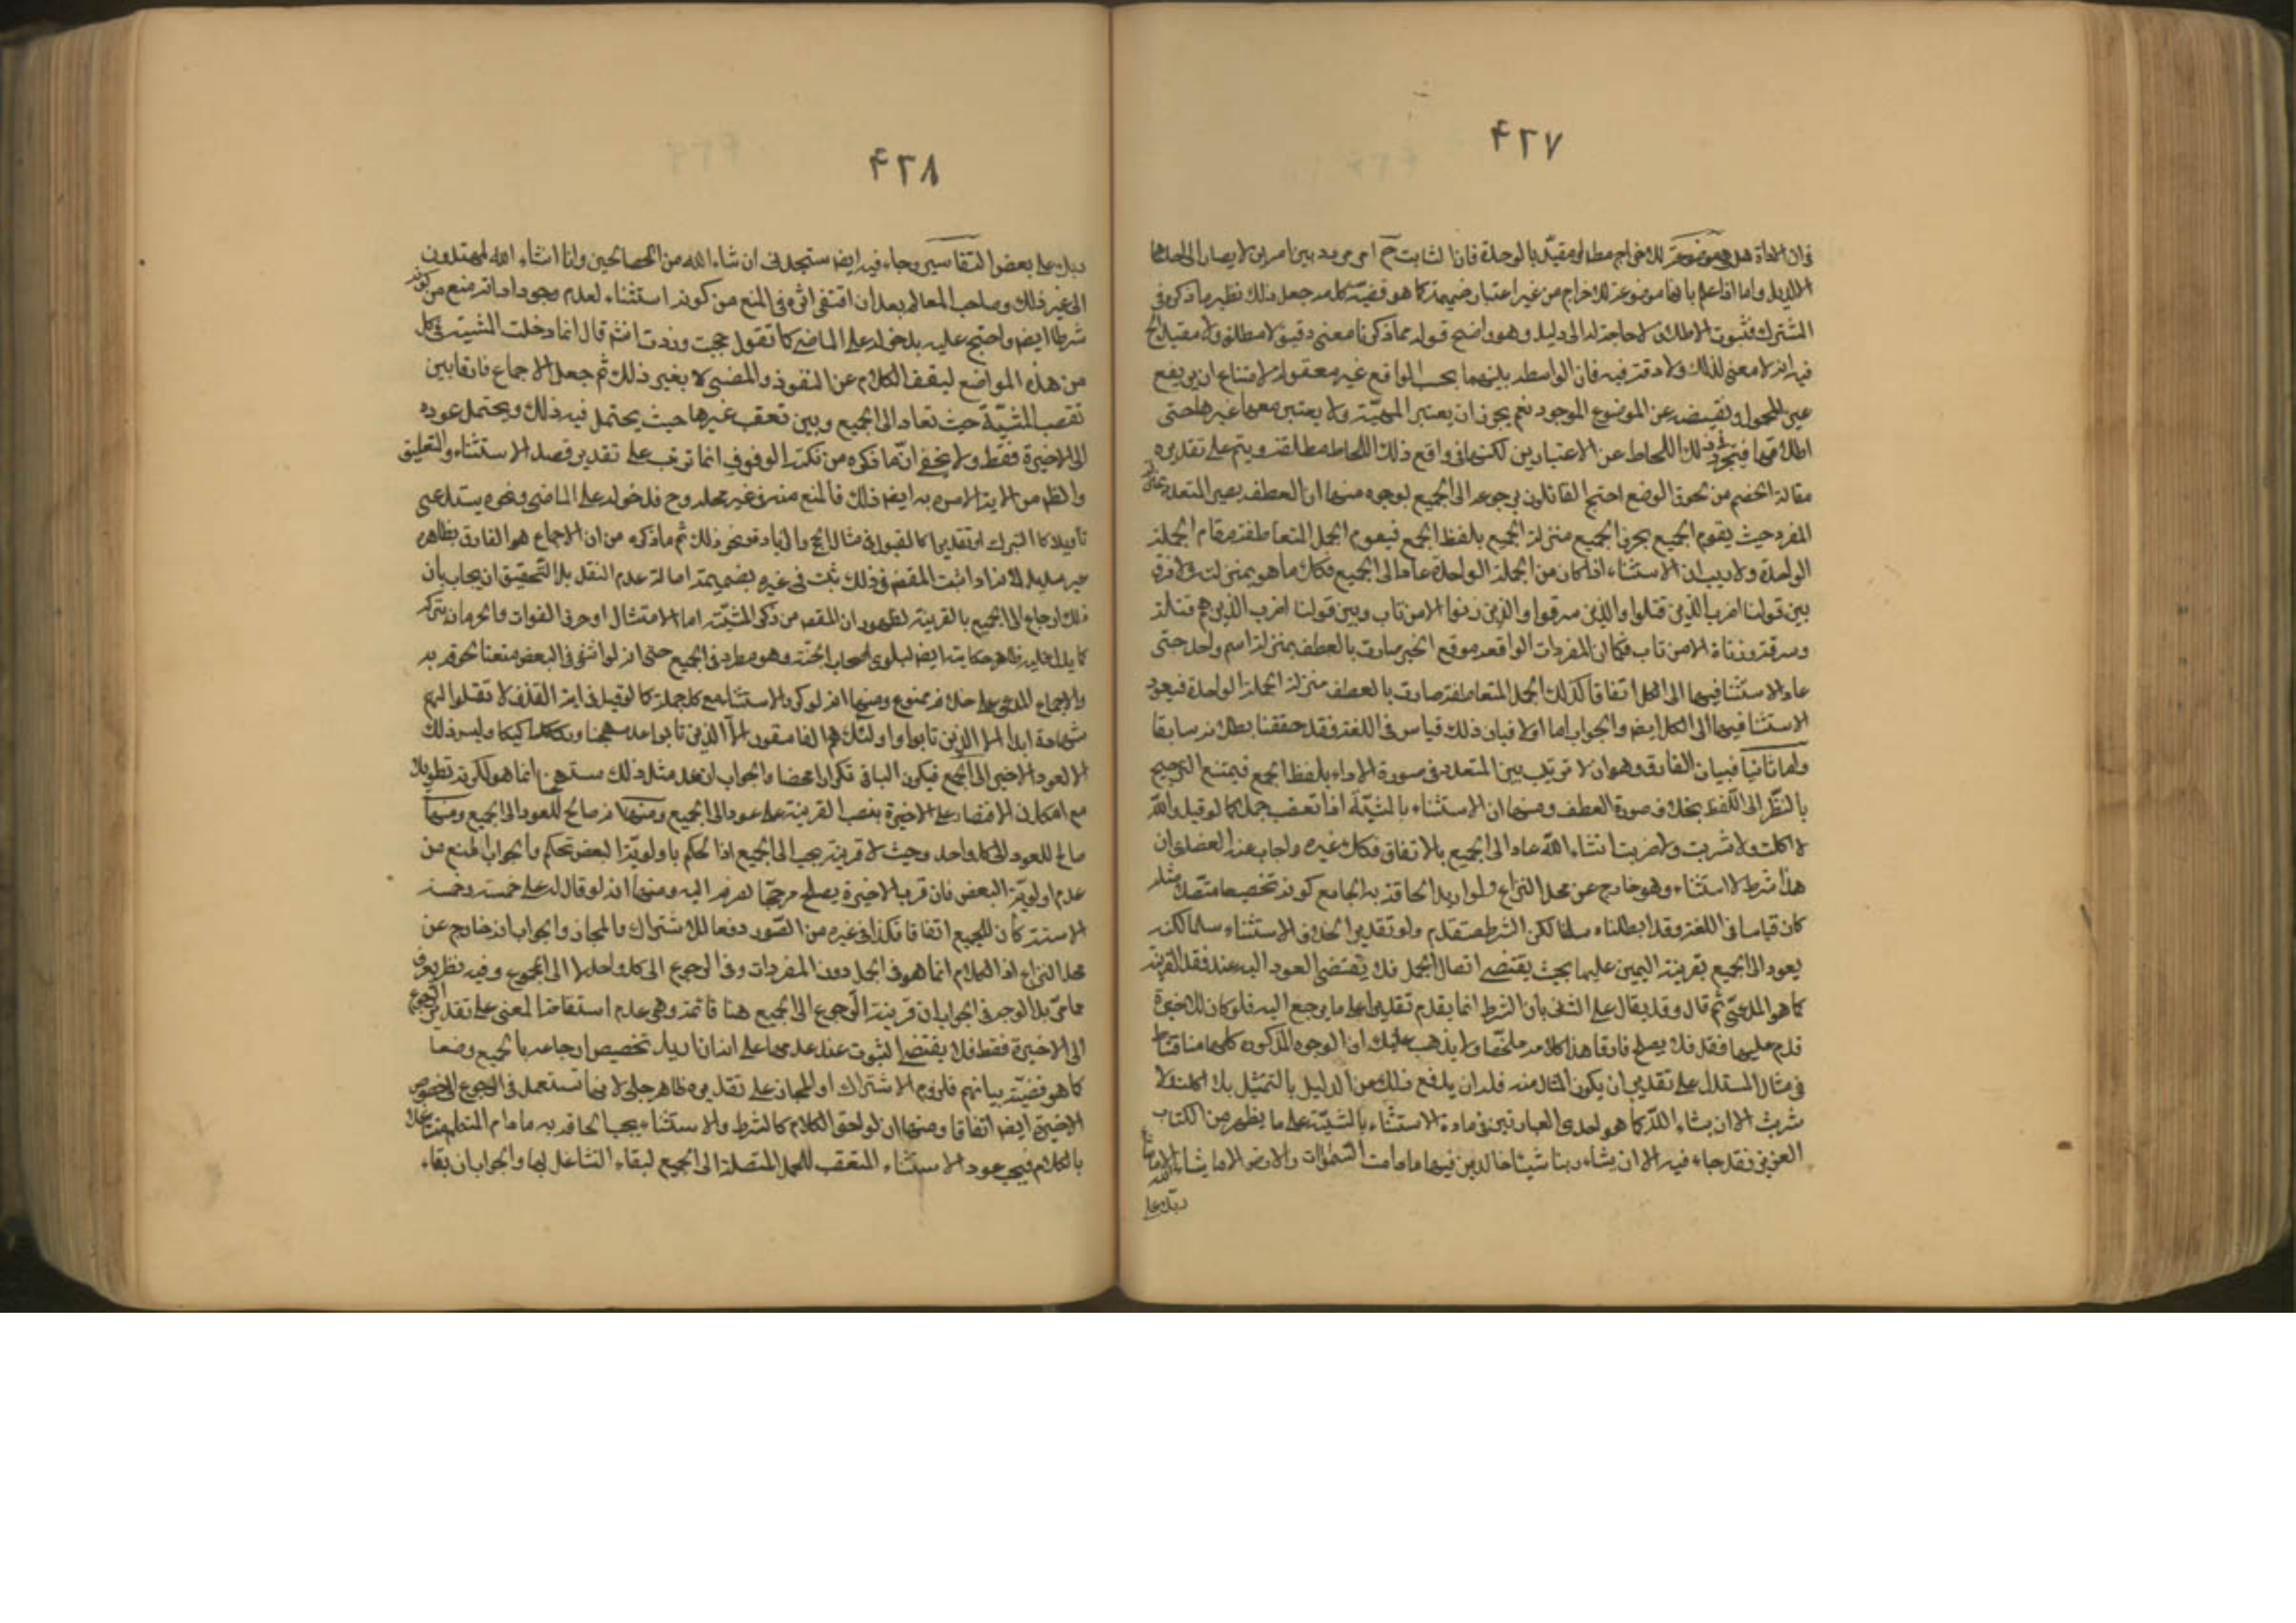 ۴۲۷
فان الاداة هل هي موضوعة للاخراج مطلقا او مقيد بالوحدة فاذا الثابت ح امر مردد بين امرين لا يصار الى احدهما
الا لدليل واما اذا علم بانها موضوعة للاخراج من غير اعتبار ضميمة كما هو قضية كلامه جعل ذلك نظير ما ذكره في
المشترك فثبوت الاطلاق لا حاجة له الى دليل وهو واضح قوله مما ذكرنا معنى دقيق لا مطلق ولا مقيد الخ
فيه انه لا معنى لذلك ولا دقة فيه فان الواسطة بينهما بحسب الواقع غير معقولة لامتناع ان يرتفع
عين المحمول ونقيضه عن الموضوع الموجود نعم يجوز ان يعتبر المهيّة ولا يعتبر معها غيرها حتى
اطلاقها فيتجرد في ذلك اللحاظ عن الاعتبارين لكنها في واقع ذلك اللحاظ مطلقة ويتم على تقديره
مقالة الخصم من تحوق الوضع احتج القائلون برجوعه الى الجميع لوجوه منها ان العطف يصير المتعدد بمنزلة
المفرد حيث يقوم الجميع بحرف الجميع منزلة الجميع بلفظ الجمع فيقوم الجمل المتعاطفة مقام الجملة
الواحدة ولا ريب ان الاستثناء اذا كان من الجملة الواحدة عاد الى الجميع فكذا ما هو بمنزلته ولا فرق
بين قولنا اضرب الذين قتلوا والذين سرقوا والذين زنوا الا من تاب وبين قولنا اضرب الذين هم قتلة
وسرقة وزناة الا من تاب فكما ان المفردات الواقعة موقع الخبر صارت بالعطف بمنزلة اسم واحد حتى
عاد الاستثناء فيها الى الكل اتفاقا كذلك الجمل المتعاطفة صارت بالعطف منزلة الجملة الواحدة فيعود
الاستثناء فيها الى الكل ايضا والجواب اما اولا فبان ذلك قياس في اللغة وقد حققنا بطلانه سابقا
واما ثانيا فببيان الفارق وهو ان لا ترتيب بين المتعدد في صورة الاداء بلفظ الجمع فيمتنع الترجيح
بالنظر الى اللفظ بخلاف صورة العطف ومنها ان الاستثناء بالمشيّة اذا تعقب جملا كما لو قيل والله
لا اكلت ولا شربت ولا ضربت انشاء الله عاد الى الجميع بالاتفاق فكذا غيره واجاب عنه العضدي ان
هذا شرط لا استثناء وهو خارج عن محل النزاع ولو اريد الحاقه به بجامع كونه تخصيصا متصلا مثله
كان قياسا في اللغة وقد ابطلناه سلمنا لكن الشرط متقدم ولو تقديرا بخلاف الاستثناء سلمنا لكنه
يعود الى الجميع بقرينة اليمين عليها بحيث يقتضي اتصال الجمل فلا يقتضي العود اليه عند فقد القرينة
كما هو المدعى ثم قال وقد يقال على الثاني بان الشرط انما يقدم تقديرا على ما يرجع اليه فلو كان للاخيرة
قدم عليها فقط فلا يصلح فارقا هذا كلامه ملخصا ولا يذهب عليك ان الوجوه المذكورة كلها مناقشات
في مثال المستدل على تقدير ان يكون المثال منه فله ان يدفع ذلك من الدليل بالتمثيل بلا اكلت ولا
شربت الا ان يشاء الله كما هو احدى العبارتين في مادة الاستثناء بالمشيّة على ما يظهر من الكتاب
العزيز فقد جاء فيه الا ان يشاء ربنا شيئا خالدين فيها ما دامت السموات والارض الا ما شاء
ربك على
۴۲۸
ربك على بعض التفاسير وجاء فيه ايضا ستجدني ان شاء الله من الصالحين وانا انشاء الله لمهتدون
الى غير ذلك وصاحب المعالم بعد ان اقتفى اثره في المنع من كونه استثناء لعدم وجود اداته منع من كونه
شرطا ايضا واحتج عليه بدخوله على الماضي كما تقول حججت وزرت انشاء قال انما دخلت المشية في كل
من هذه المواضع ليقف الكلام عن النفوذ والمضي لا بغير ذلك ثم جعل الاجماع فارقا بين
تعقب المشيّة حيث تعاد الى الجميع وبين تعقب غيرها حيث يحتمل فيه ذلك ويحتمل عوده
الى الاخيرة فقط ولا يخفى ان ما ذكره من نكتة الوقوف انما ترتب على تقدير قصد الاستثناء والتعليق
والظاهر من الاية الامر به ايضا ذلك فالمنع منه في غير محله وح فدخوله على الماضي ونحوه يستدعي
تأويلا كالتبرك او تقديرا كالقبول في مثال الحج والزيارة ونحو ذلك ثم ما ذكره من ان الاجماع هو الفارق بظاهره
غير سديد لانه اذا ثبت المقص في ذلك ثبت في غيره بضميمة اصالة عدم النقل بل التحقيق ان يجاب بان
ذلك ارجاع الى الجميع بالقرينة لظهور ان المقص من ذكر المشيّة اما الامتثال او حرف الفوات والحرمان بتركه
كما يدل عليه ظاهر حكايته ايضا لبلوى اصحاب الجنة وهو مطرد في الجميع حتى انه لو انتفى في البعض منعنا لحوقه به
والاجماع المدعى على خلافه ممنوع ومنها انه لو كرر الاستثناء مع كل جملة كما لو قيل في اية القذف لا تقبلوا لهم
شهادة ابدا الا الذين تابوا واولئك هم الفاسقون الا الذين تابوا عد مستهجنا وركيكا وليس ذلك
الا لعود الاخير الى الجميع فيكون الباقي تكرارا محضا والجواب ان عد مثل ذلك مستهجنا انما هو لكونه تطويلا
مع امكان الاقتصار على الاخيرة بنصب القرينة على عوده الى الجميع ومنها انه صالح للعود الى الجميع ومنها
صالح للعود الى كل واحد وحيث لا قرينة يجب الى الجميع اذ الحكم باولوية البعض تحكم والجواب المنع من
عدم اولوية البعض فان قرب الاخيرة يصلح مرجحا لصرفه اليه ومنها انه لو قال له على خمسة وخمسة
الا ستة كان للجميع اتفاقا فكذا في غيره من الصور دفعا للاشتراك والمجاز والجواب انه خارج عن
محل النزاع اذ الكلام انما هو في الجمل دون المفردات وفي الرجوع الى كل واحد لا الى المجموع وفيه نظر يعرف
مما مر بل الوجه في الجواب ان قرينة الرجوع الى الجميع هنا قائمة وهي عدم استقامة المعنى على تقدير الرجوع
الى الاخيرة فقط فلا يقتضي الثبوت عند عدمها على انه ان اريد تخصيص ارجاعه بالجميع وضعا
كما هو قضية بيانهم فلزوم الاشتراك او المجاز على تقديره ظاهر جلي لانها تستعمل في الرجوع الى خصوص
الاخيرة ايضا اتفاقا ومنها ان لواحق الكلام كالشرط والاستثناء يجب الحاقه به ما دام المتكلم متشاغلا
بالكلام فيجب عود الاستثناء المتعقب للجمل المتصلة الى الجميع لبقاء التشاغل بها والجواب ان بقاء